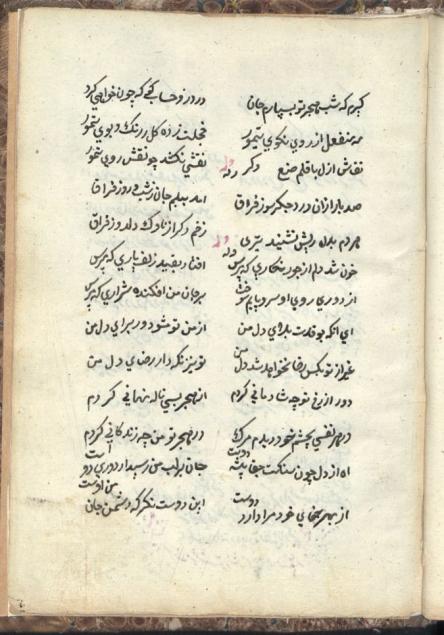 کیرم که شب هجر تو بسپارم جان در روز که چون خواهی کرد
مه منفعل از روی نکوی تیمور خجلت زده کل ز رنک و بوی تیمور
نقاش ازل با قلم صنع دکر نقشی نکشد چو نقش روی تیمور
وله
صد بار ازان درد جکر سوز فراق امد بلبم جان ز شب و روز فراق
هردم بدل ریش نشیند تیری زخم دکر از ناوک دلدوز فراق
وله
خون شد دلم از جور نکاری که مپرس افتاد بقید زلف یاری که مپرس
از دوری روی او سر و پایم سوخت بر جان من افکنده شراری که مپرس
ای انکه بود قدت بلای دل من از من تو مشو دور برای دل من
غیر از تو بکس رضا نخواهد شد دل من تو نیز نکه دار رضای دل من
دور از رخ تو چه شادمانی کردم از هجر بسی ناله نهانی کردم
در هر نفسی بچشم خود دیدم مرک در هجر تو من چه زندکانی کردم
اه از دل چون سنکت جفا پیشه دوست جان بر لب من رسید از دوری دوست
از بهر جفای خود مرا دارد دوست این دوست نکر که دشمن جان من اوست